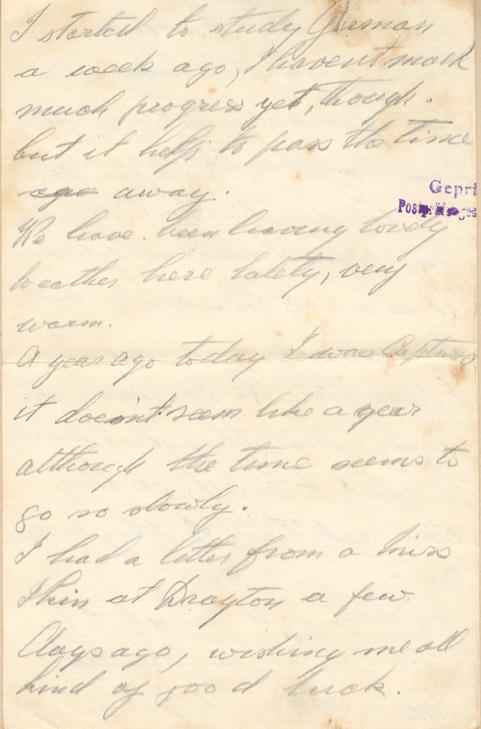 I started to study German
a week ago, I havent made
much progress yet, though.
but it helps to pass the time
away.
Gepri
We have been having lovely
weather here lately, very
warm.
A year ago today I was Captured
it doesnt seem like a year
although the time seems to
go so slowly.
I had a letter from a Miss
at Drayton a few
days ago, wishing me all
kind of good luck.